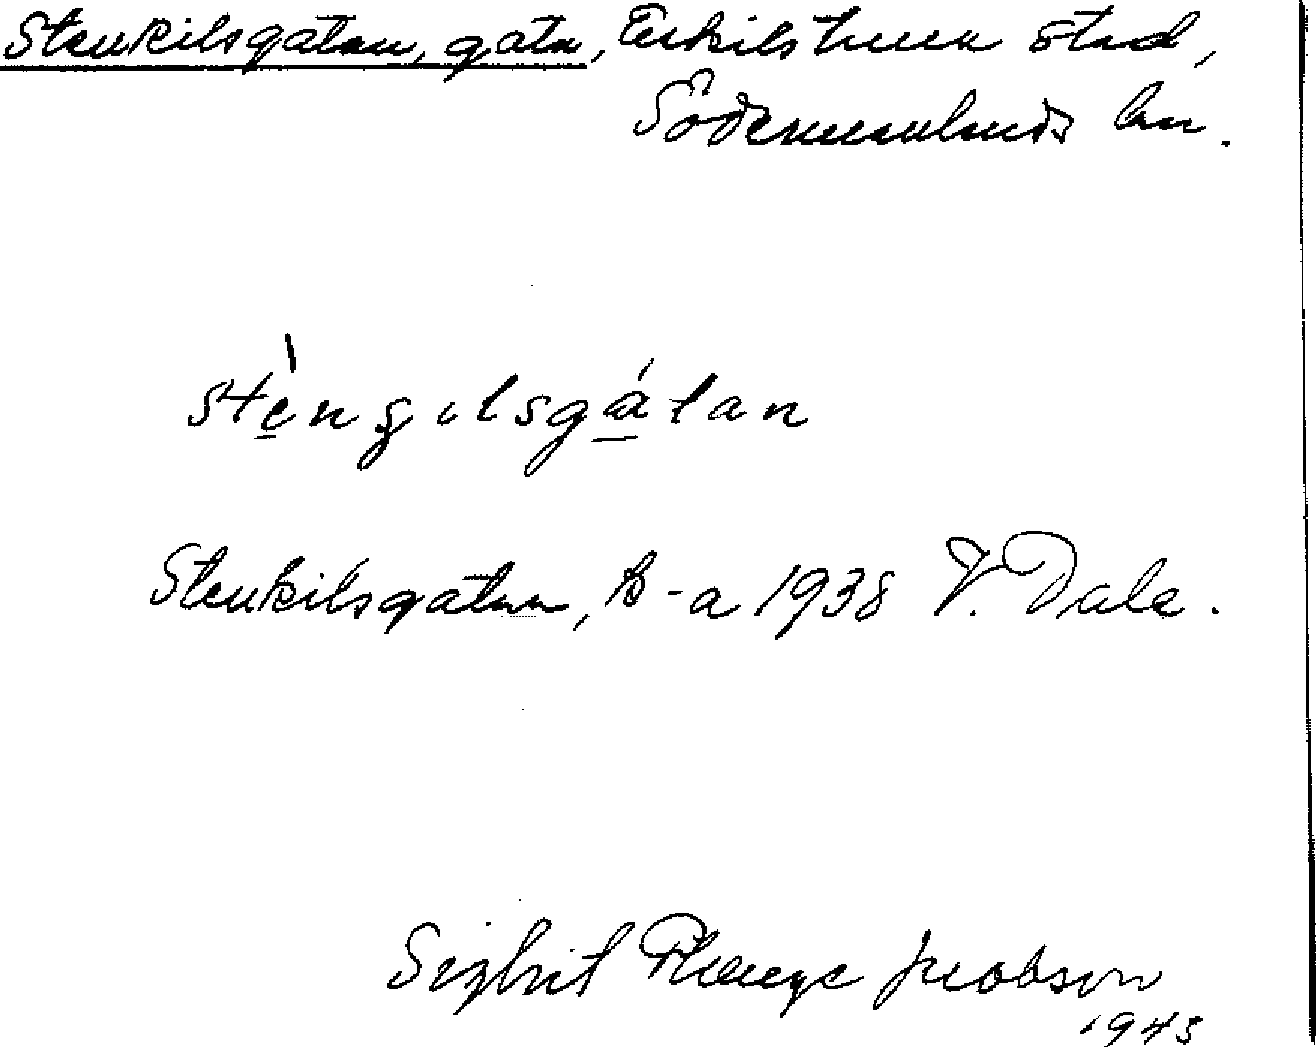 Stenkilsgatan, gata, Eskilstuna stad,
Södermanlands län.
stèngilsgátan
Stenkilsgatan, k-a 1938 V. Dala.
Sigbrit Plænge Jacobson
1943